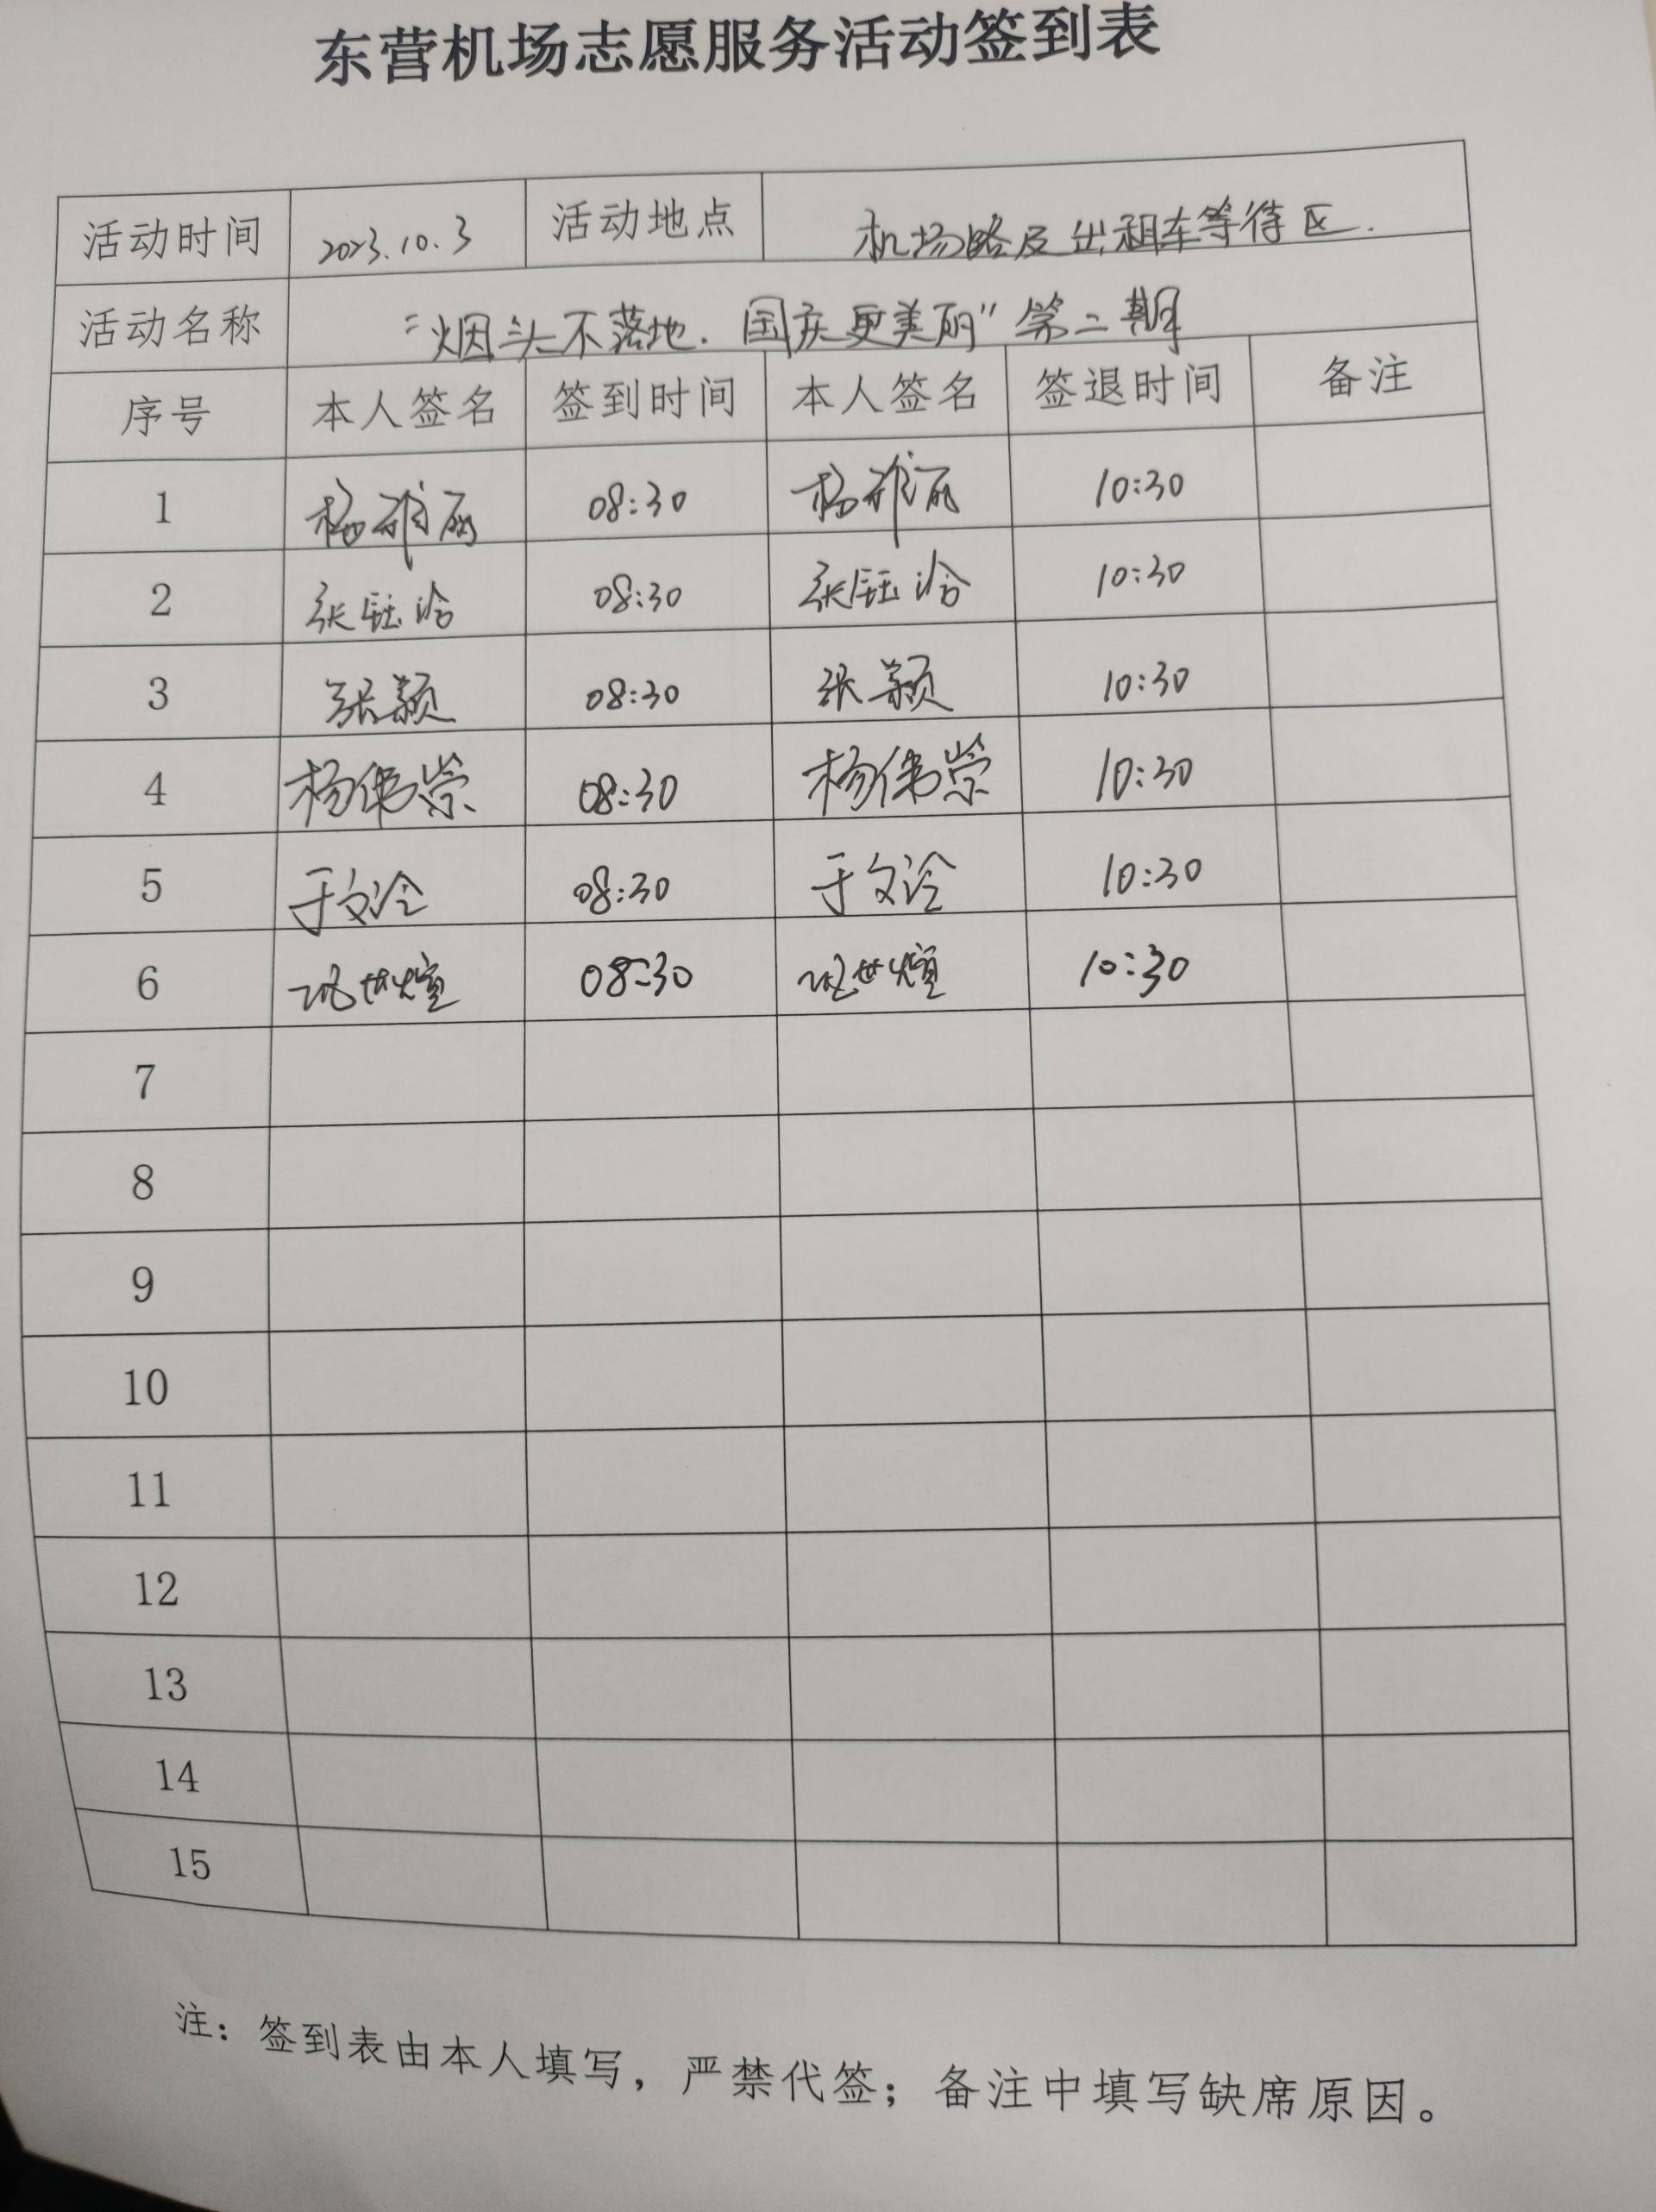 东营机场志愿服务活动签到表
活动时间 2023.10.3 活动地点 机场路及出租车等待区.
活动名称 "烟头不落地.国庆更美丽"第二期
序号 本人签名 签到时间 本人签名 签退时间 备注
1 杨雅丽 08:30 杨雅丽 10:30
2 张钰洽 08:30 张钰洽 10:30
3 张颖 08:30 张颖 10:30
4 杨伟崇 08:30 杨伟崇 10:30
5 于文泠 08:30 于文泠 10:30
6 08:30 10:30
7
8
9
10
11
12
13
14
15
注：签到表由本人填写，严禁代签；备注中填写缺席原因。